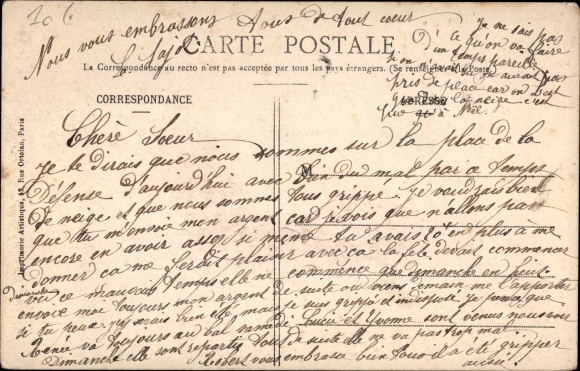 10 6
Nous vous embrassons tous de tout coeur
CARTE POSTALE
La Correspondance au recto n'est pas acceptée par tous les pays étrangers. (Se renseigner à la Poste)
CORRESPONDANCE
ADRESSE
Imprimerie Artistique, Rue Ortolan, Paris
Je ne sais pas
ce qu'on va faire
d'un temps pareille
si on
pris de place car on est
que la neige c'est
pire qu'à Noël.
Chère Soeur
Je te dirais que nous sommes sur la place de la
Défense d'aujourd'hui avec bien du mal par ce temps
de neige et que nous sommes tous grippé. Je voudrais bien
que tu m'envoie mon argent car je vois que n'allons pas
encore en avoir assez si même tu avais 10 en plus a me
donner ca me ferait plaisir avec ca la fête devait commencer
vu ce mauvais temps elle ne commence que dimanche en huit.
envoie moi toujours mon argent de suite ou viens demain me l'apporter
si tu peux j'aimerais bien mais je suis grippé et indisposé je
Renée va toujours au bal Lucie et Yvonne sont venus nous voir
Dimanche elle sont repartis tous de suite elle ne va pas trop mal.
Robert vous embrasse bien tous il a été gripper
aussi.